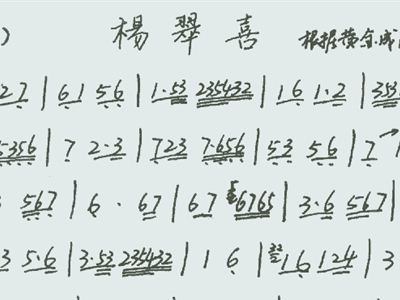 ) 楊翠喜 根据黄金成
27 | 61 56 | 1·53 235432 | 16 1·2 | 353
5356 | 7 2·3 | 723 7·656 | 53 56 | 7
567 | 6· 67 | 67 6765 | 3·6 567 |
3 5·6 | 3·53 235432 | 1 6 | 32 16 124 | 3